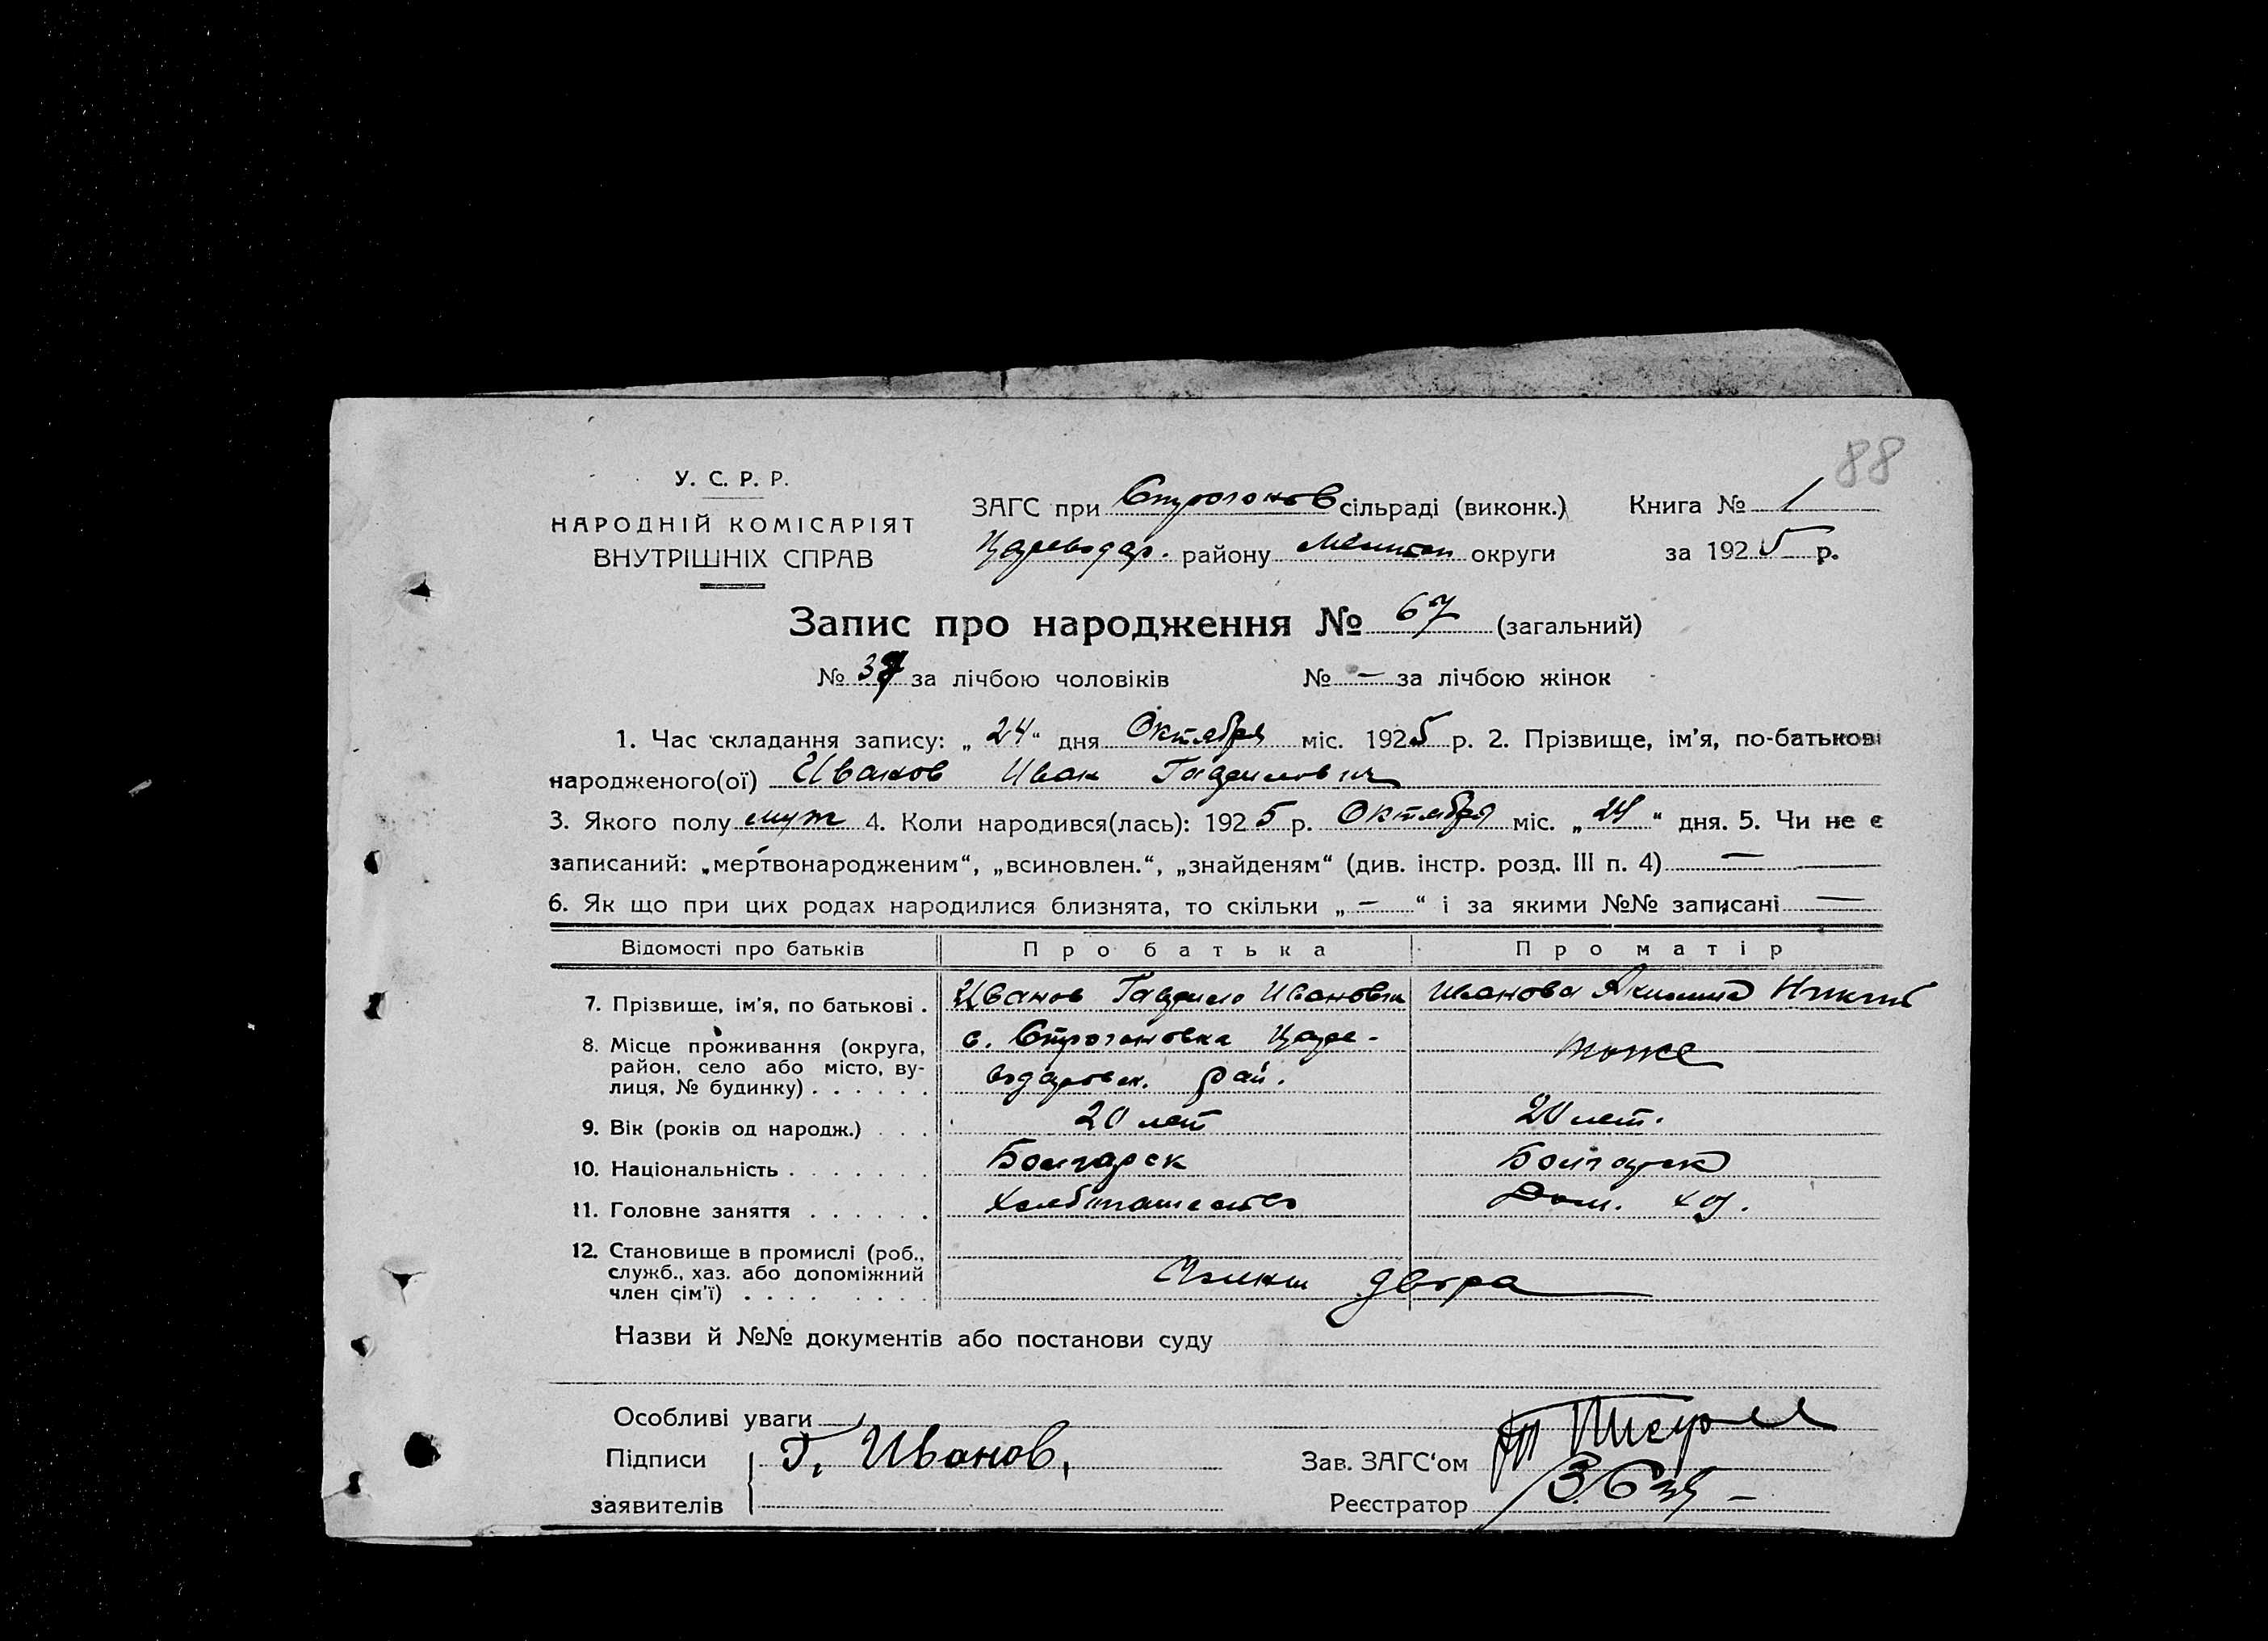 88
У. С. Р. Р.
НАРОДНІЙ КОМІСАРІЯТ
ВНУТРІШНІХ СПРАВ
ЗАГС при Строганов сільраді (виконк.) Книга № 1
Цареводар. району Мелитоп округи за 1925 р.
Запис про народження № 67 (загальний)
№ 37 за лічбою чоловіків № — за лічбою жінок
1. Час складання запису: „ 24 “ дня Октября міс. 1925 р. 2. Прізвище, ім'я, по-батькові
народженого(ої) Иванов Иван Гаврилович
3. Якого полу муж 4. Коли народився(лась): 1925 р. Октября міс. „ 24 “ дня. 5. Чи не є
записаний: „мертвонародженим“, „всиновлен.“, „знайденям“ (див. інстр. розд. III п. 4) —
6. Як що при цих родах народилися близнята, то скільки „ — “ і за якими №№ записані —
Відомості про батьків Про батька Про матір
7. Прізвище, ім'я, по батькові . Иванов Гаврило Иванович Иванова Акилина Никит
8. Місце проживання (округа, с. Строгановка Царе-
район, село або місто, ву- тоже
лиця, № будинку) . . . . . . водаровск. рай.
9. Вік (років од народж.) . . . 20 лет 20 лет.
10. Національність . . . . . . . Болгарск Болгарск
11. Головне заняття . . . . . . Хлебопашество Дом. хоз.
12. Становище в промислі (роб.,
служб., хаз. або допоміжний Члены двора
член сім'ї) . . . . . . . . .
Назви й №№ документів або постанови суду
Особливі уваги
Підписи Г. Иванов, Зав. ЗАГС'ом
заявителів Реєстратор